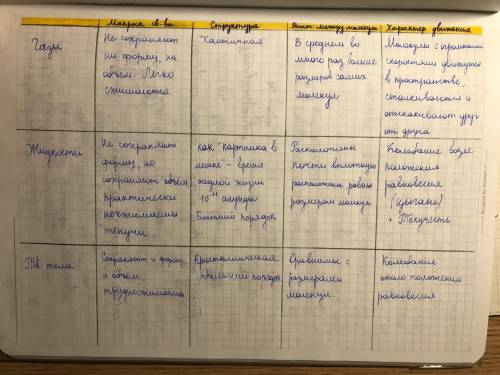 Макроск св-ва Структура Расст между молекул Характер движения
Газы
Не сохраняют
ни форму, ни
объём. Легко
сжимаются.
Хаотичная
В среднем во
много раз больше
размеров самих
молекул
Молекулы с огромными
скоростями движутся
в пространстве,
сталкиваются и
отскакивают друг
от друга
Жидкости
Не сохраняют
форму, но
сохраняют объём
практически
несжимаемы
текучи
как "картошка в
мешке" - время
оседлой жизни
секунды
Ближний порядок
Расположены
почти вплотную
расстояния равны
размерам молекул
Колебание возле
положения
равновесия
(цыгане)
+ Текучесть
Тв. тела
Сохраняют и форму,
и объём
трудносжимаема
Кристаллическая
Дальний порядок
Сравнимы с
размерами
молекул.
Колебание
около положения
равновесия